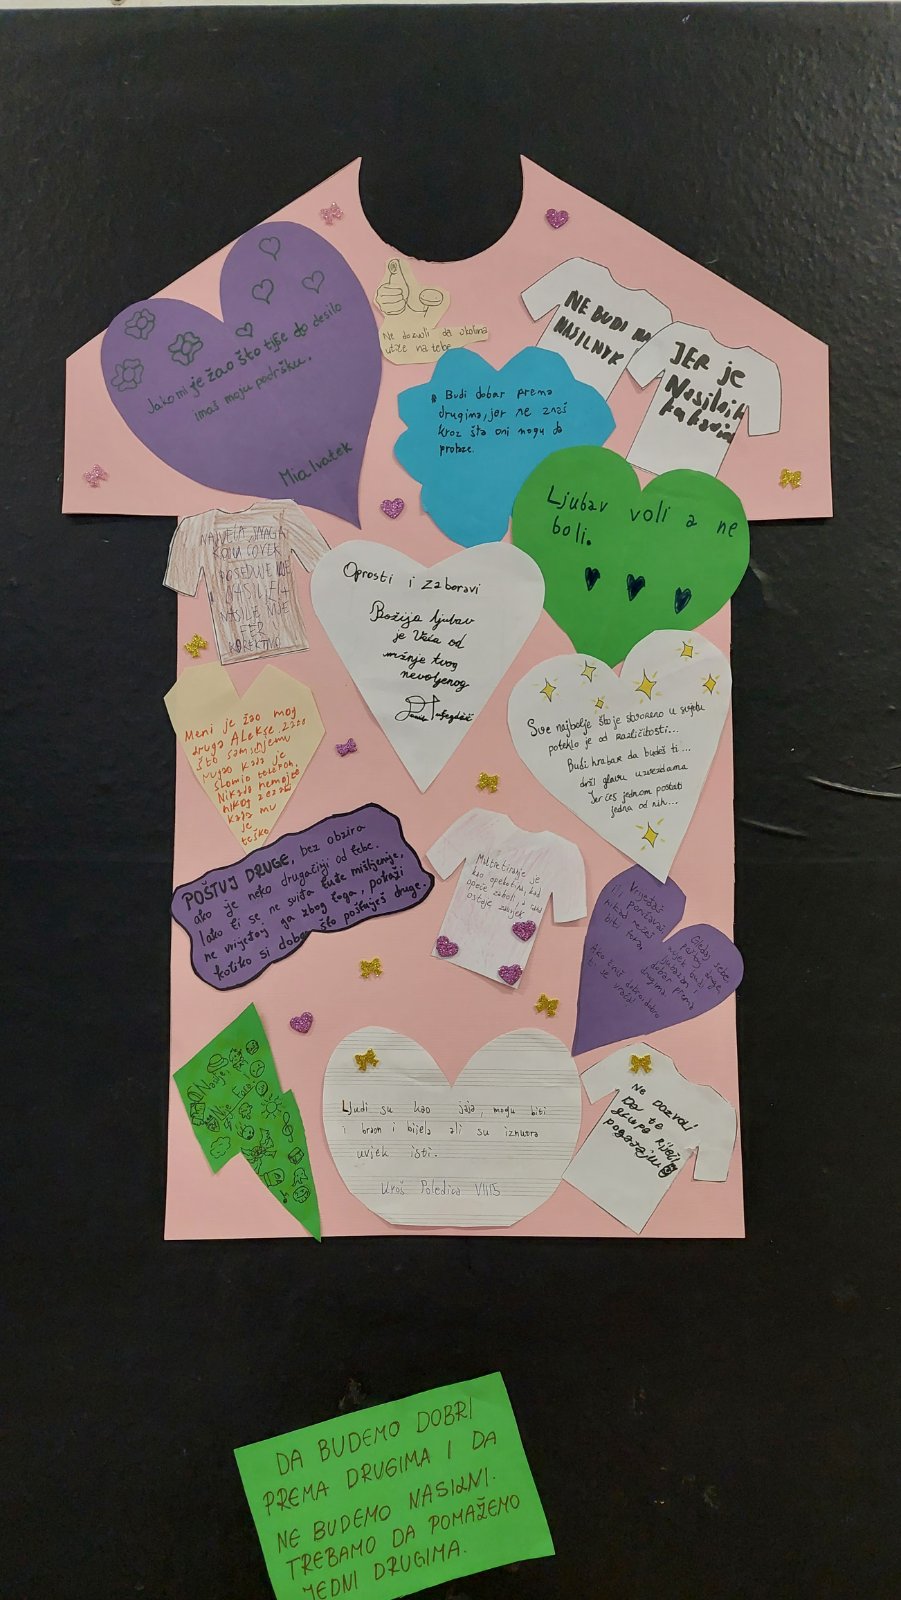 Jako mi je žao što ti se to desilo
imaš moju podršku.
Mia Ivatek
Ne dozvoli da okolina
utiče na tebe
NE BUDI
NASILNIK
JER je
Nasilnik
Budi dobar prema
drugima, jer ne znaš
kroz šta oni mogu da
prolaze.
Ljubav voli a ne
boli.
NAJVEĆA SNAGA
KOJU ČOVEK
POSEDUJE NIJE
NASILJE
NASILJE NIJE
FER
KOREKTNO
Oprosti i zaboravi
Božija ljubav
je Veća od
mržnje tvog
nevoljenog
Sve najbolje što je stvoreno u svijetu
poteklo je od različitosti...
Budi hrabar da budeš ti...
drži glavu u zvezdama
Jer ćeš jednom postati
jedna od njih...
Meni je žao mog
druga Alekse
što
kada je
slomio telefon.
Nikada nemojte
nikog zezati
kada mu
je
teško
POŠTUJ DRUGE, bez obzira
ako je neko drugačiji od tebe.
Iako ti se ne sviđa tuđe mišljenje,
ne vrijeđaj ga zbog toga, pokaži
koliko si dobar što poštuješ druge.
Maltretiranje je
kao opekotina, kad
opeče zaboli, a trag
ostaje zauvijek
Vrijeđaš
ili ponižavaš
nikad nećeš
biti
Ako činiš
dobro, dobro
ti se
vraća!
Gledaj sebe,
poštuj druge,
uvijek budi
ljubazan i
dobar prema
drugima.
Ljudi su kao jaja, mogu biti
i braon i bijela ali su iznutra
uvjek isti.
Uroš Poledica VIII5
Ne Dozvoli
Da te
grupa
DA BUDEMO DOBRI
PREMA DRUGIMA I DA
NE BUDEMO NASILNI.
TREBAMO DA POMAŽEMO
JEDNI DRUGIMA.